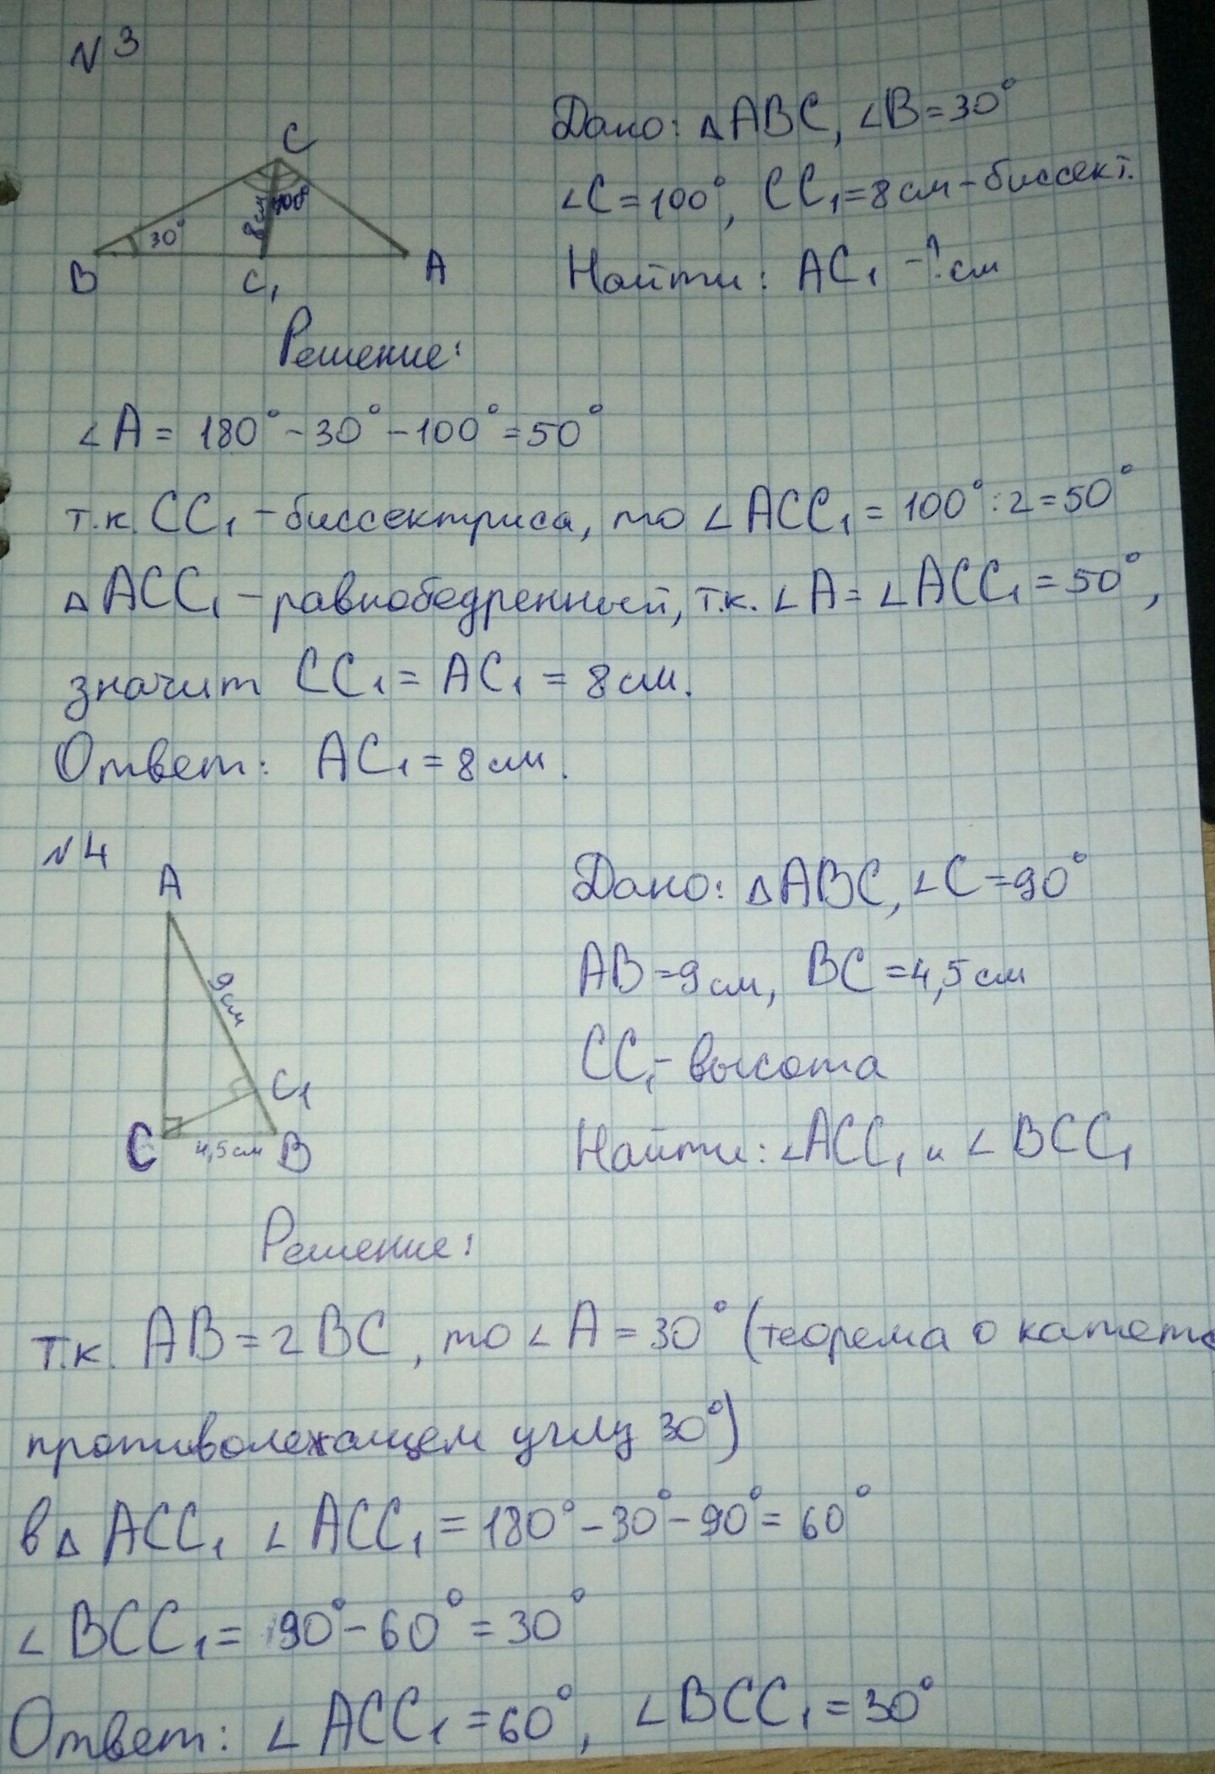 N3
C
30° 8см 100°
B C₁ A
Дано: △ABC, ∠B=30°
∠C=100°, CC₁=8см-биссект.
Найти: AC₁ -? см
Решение:
∠A= 180°-30°-100°=50°
т.к. CC₁ -биссектриса, то ∠ACC₁ = 100°:2=50°
△ACC₁ -равнобедренный, т.к. ∠A= ∠ACC₁=50°,
значит CC₁= AC₁ = 8см.
Ответ: AC₁=8см.
N4
A
9см
C₁
C 4,5см B
Дано: △ABC, ∠C=90°
AB=9см, BC=4,5см
CC₁- высота
Найти: ∠ACC₁ и ∠BCC₁
Решение:
т.к. AB=2BC, то ∠A=30° (теорема о катете
противолежащем углу 30°)
в △ ACC₁ ∠ACC₁ = 180°-30°-90°= 60°
∠BCC₁= 90°-60°=30°
Ответ: ∠ACC₁=60°, ∠BCC₁=30°